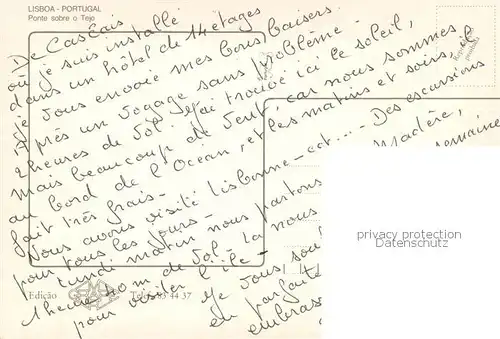 LISBOA - PORTUGAL
Ponte sobre o Tejo
De Cascais
où je suis installé
dans un hôtel de 14 étages
je vous envoie mes bons baisers.
Après un voyage sans problème -
2 heures de vol. J'ai trouvé ici le soleil,
mais beaucoup de vent, car nous sommes
au bord de l'Océan, et les matins et soirs, il
fait très frais -
Nous avons visité Lisbonne - est... - Des excursions
pour tous les jours -
Lundi matin nous partons Madère,
1 heure 20 m de vol - La nous semaine
pour visiter l'île -
Je vous sou
en parfaite
embrass
Edição
Telef. 83 44 37
privacy protection
Dateiname